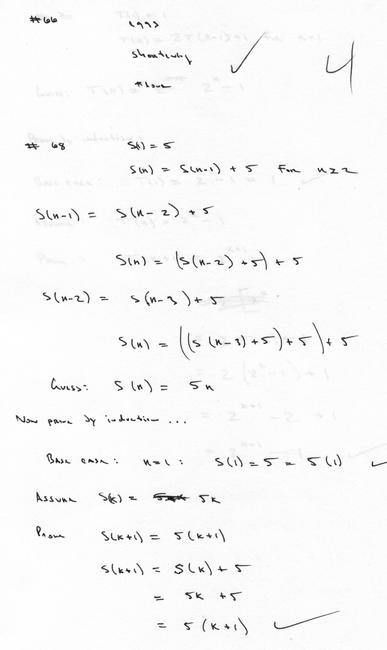 #66 1993
shortwhy
above
4
# 68 S(1) = 5
S(n) = S(n-1) + 5 for n ≥ 2
S(n-1) = S(n-2) + 5
S(n) = (S(n-2) + 5) + 5
S(n-2) = S(n-3) + 5
S(n) = ((S(n-3) + 5) + 5) + 5
Guess: S(n) = 5n
Now prove by induction ...
Base case: n=1: S(1) = 5 = 5(1) ✓
Assume S(k) = 5k
Prove S(k+1) = 5(k+1)
S(k+1) = S(k) + 5
= 5k + 5
= 5(k+1) ✓